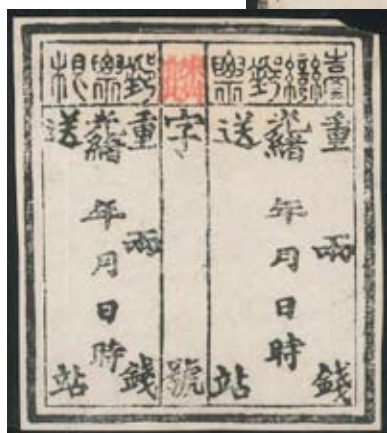 臺灣郵票
重 兩 錢
光緒 年月日時
送 站
字 號
郵票根
重 兩 錢
光緒 年月日時
送 站